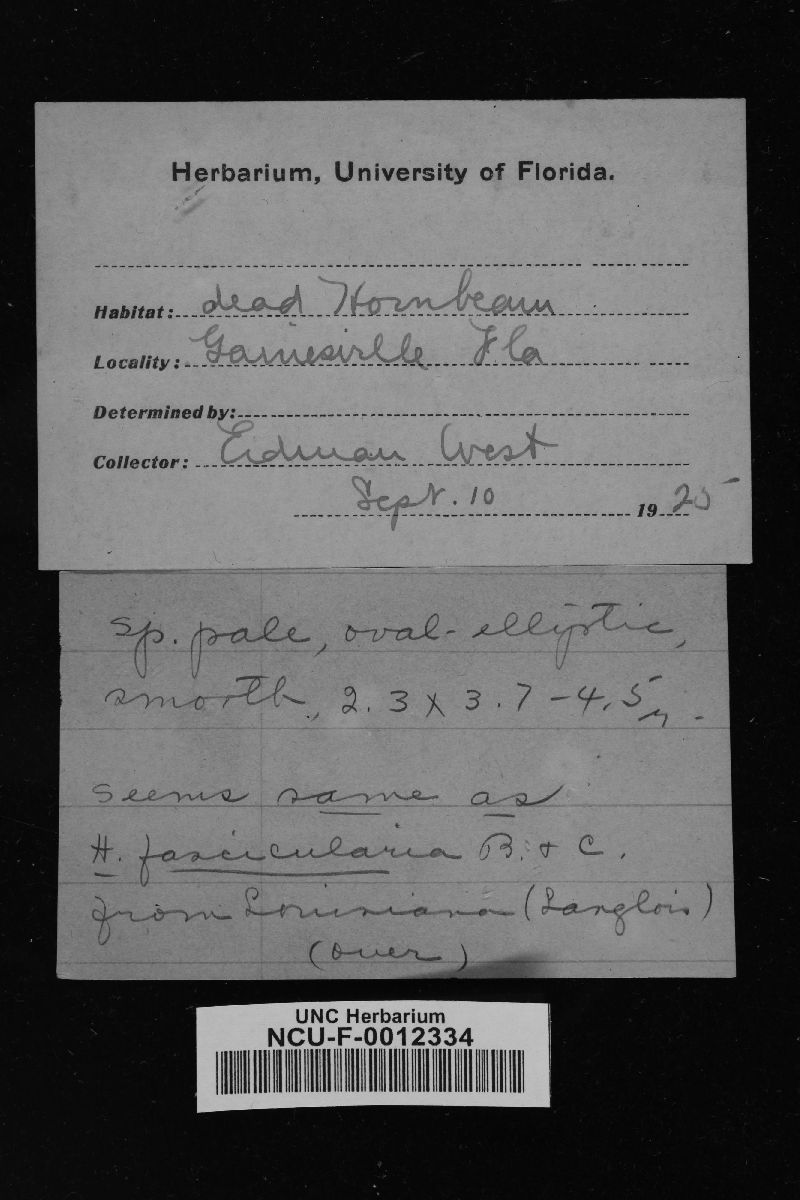 Herbarium, University of Florida.
Habitat: dead Hornbeam
Locality: Gainesville Fla
Determined by:
Collector: Erdman West
Sept. 10 1925
Sp. pale, oval-elliptic,
smooth, 2.3 x 3.7-4.5 μ.
Seems same as
H. fascicularia B. & C.
from Louisiana (Langlois)
(over)
UNC Herbarium
NCU-F-0012334